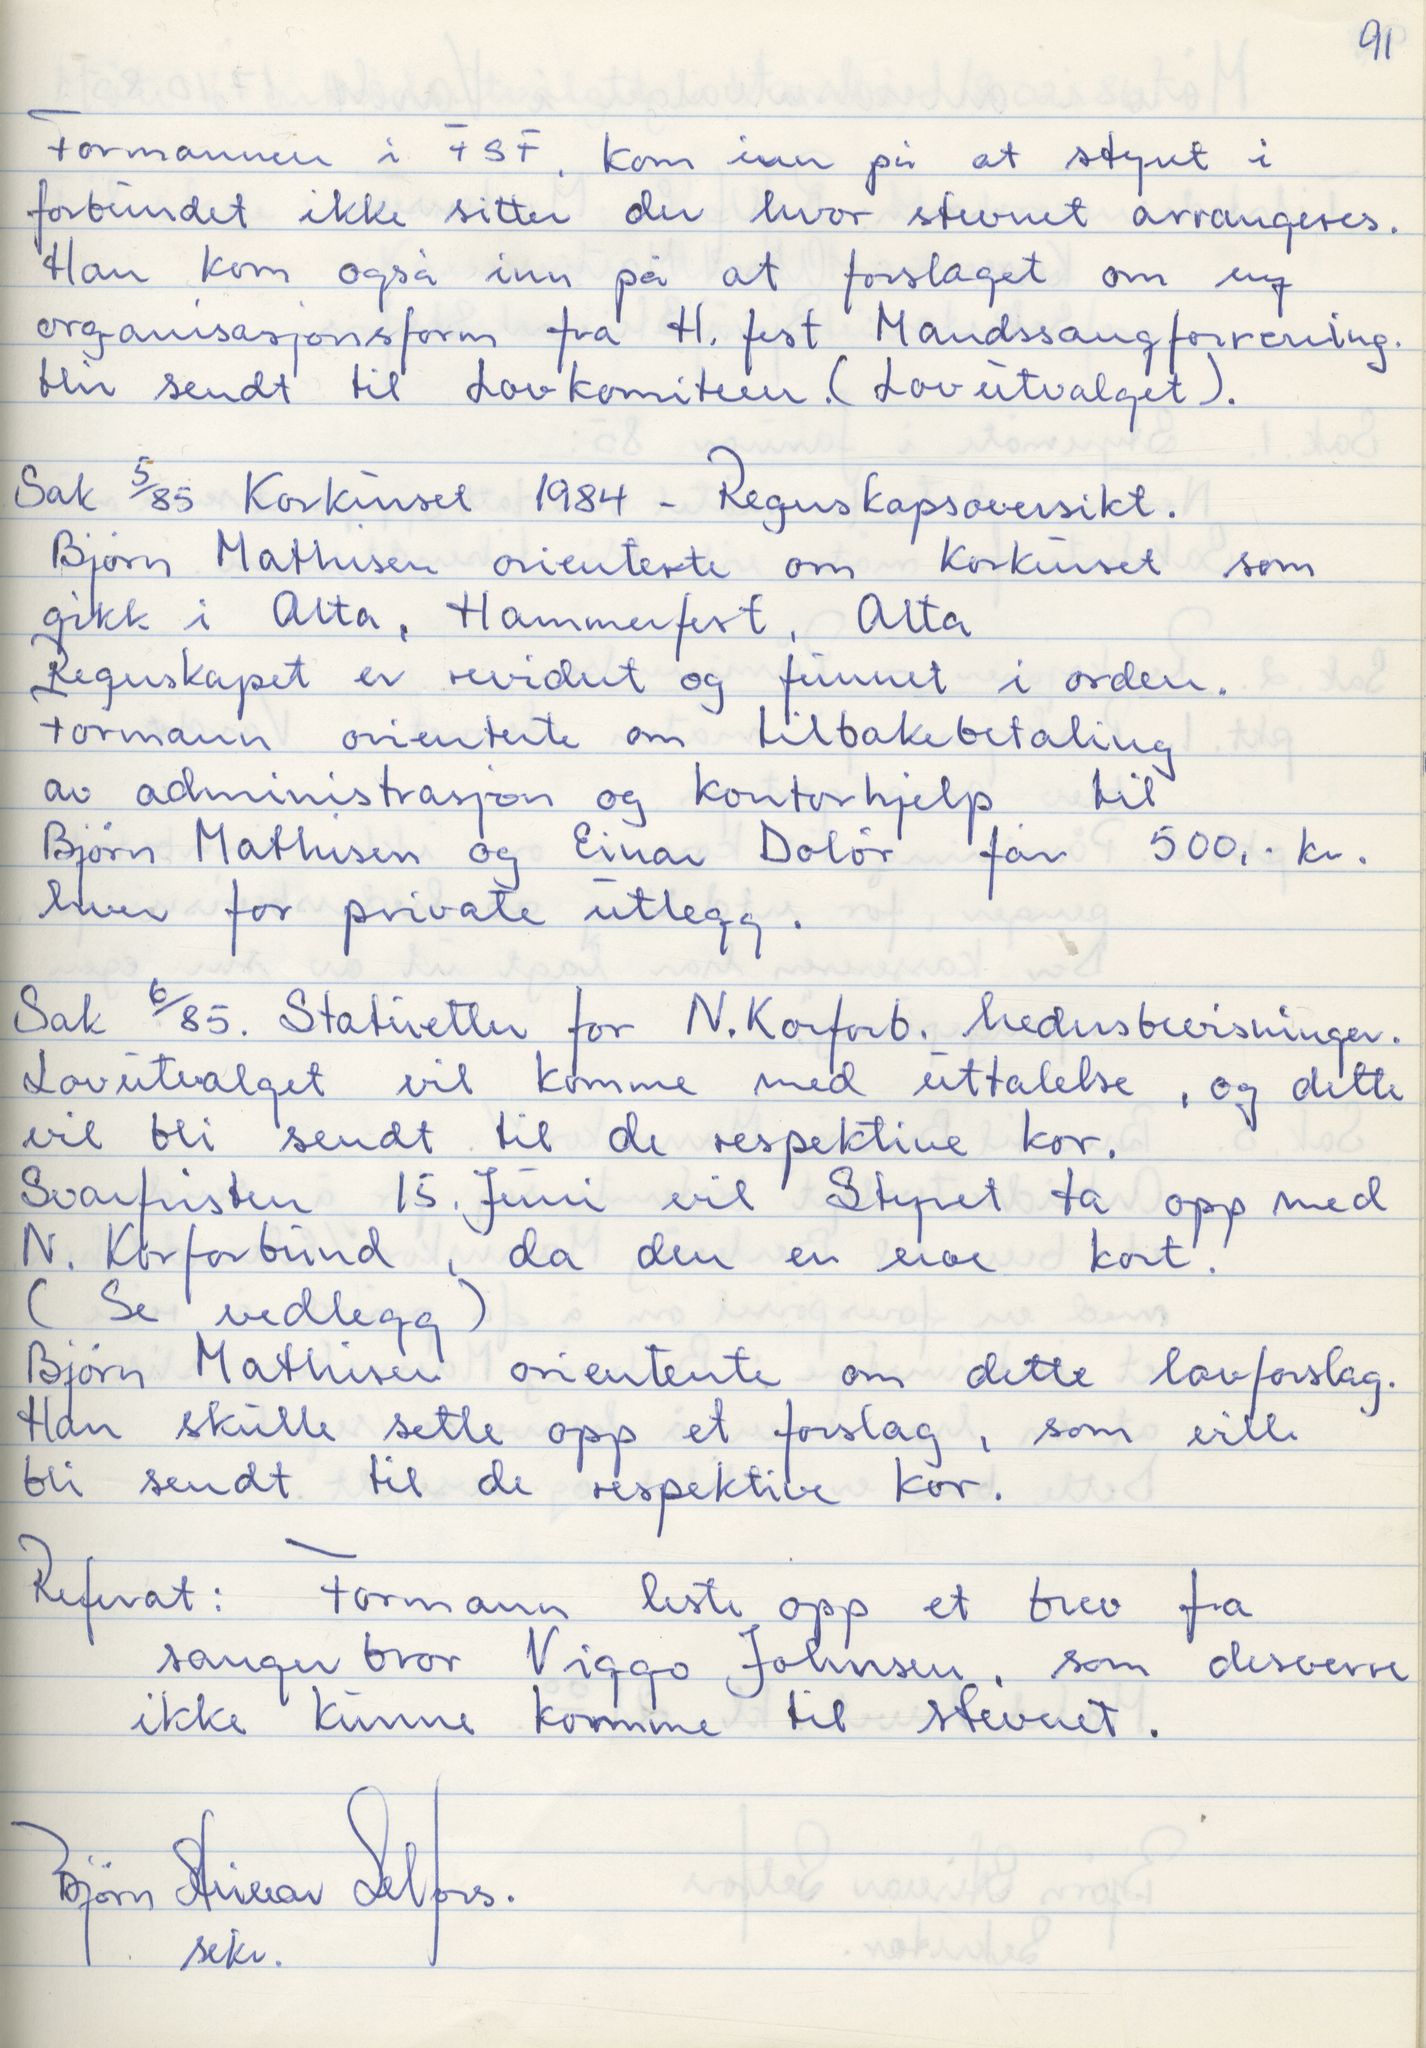 91
Formannen i FSF. kom inn på at styret i
forbundet ikke sitter der hvor stevnet arrangeres.
Han kom også inn på at forslaget om ny
organisasjonsform fra H. fest Mandssangforrening.
blir sendt til Lovkomiteen. (Lovutvalget).
Sak 5/85 Korkurset 1984 - Regnskapsoversikt.
Bjørn Mathisen orienterte om korkurset som
gikk i Alta, Hammerfest, Alta
Regnskapet er revidert og funnet i orden.
Formann orienterte om tilbakebetaling
av administrasjon og kontorhjelp til
Bjørn Mathisen og Einar Dolør får 500,- kr.
hver for private utlegg.
Sak 6/85. Statuetter for N.Korforb. hedersbevisninger.
Lovutvalget vil komme med uttalelse, og dette
vil bli sendt til de respektive kor.
Svarfristen 15. Juni vil Styret ta opp med
N. Korforbund, da den er kort.
(Se vedlegg)
Bjørn Mathisen orienterte om dette lovforslag.
Han skulle sette opp et forslag, som ville
bli sendt til de respektive kor.
Referat: Formann leste opp et brev fra
sangerbror Viggo Johnsen, som desverre
ikke kunne komme til stevnet.
Bjørn Steinar Selfors.
sekr.